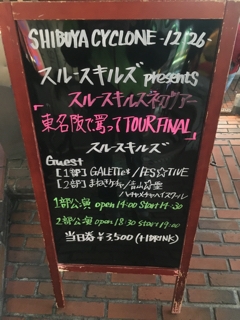 SHIBUYA CYCLONE -12/26-
スルースキルズ presents
スルースキルズ初ツアー
「東名阪で罵ってTOUR FINAL」
スルースキルズ
Guest
【1部】GALETTe / FES☆TIVE
【2部】まねきケチャ /
ハチャメチャハイスクール
1部公演 open 14:00 Start 14:30
2部公演 open 18:30 Start 19:00
当日券 ¥3,500 (+1DRINK)